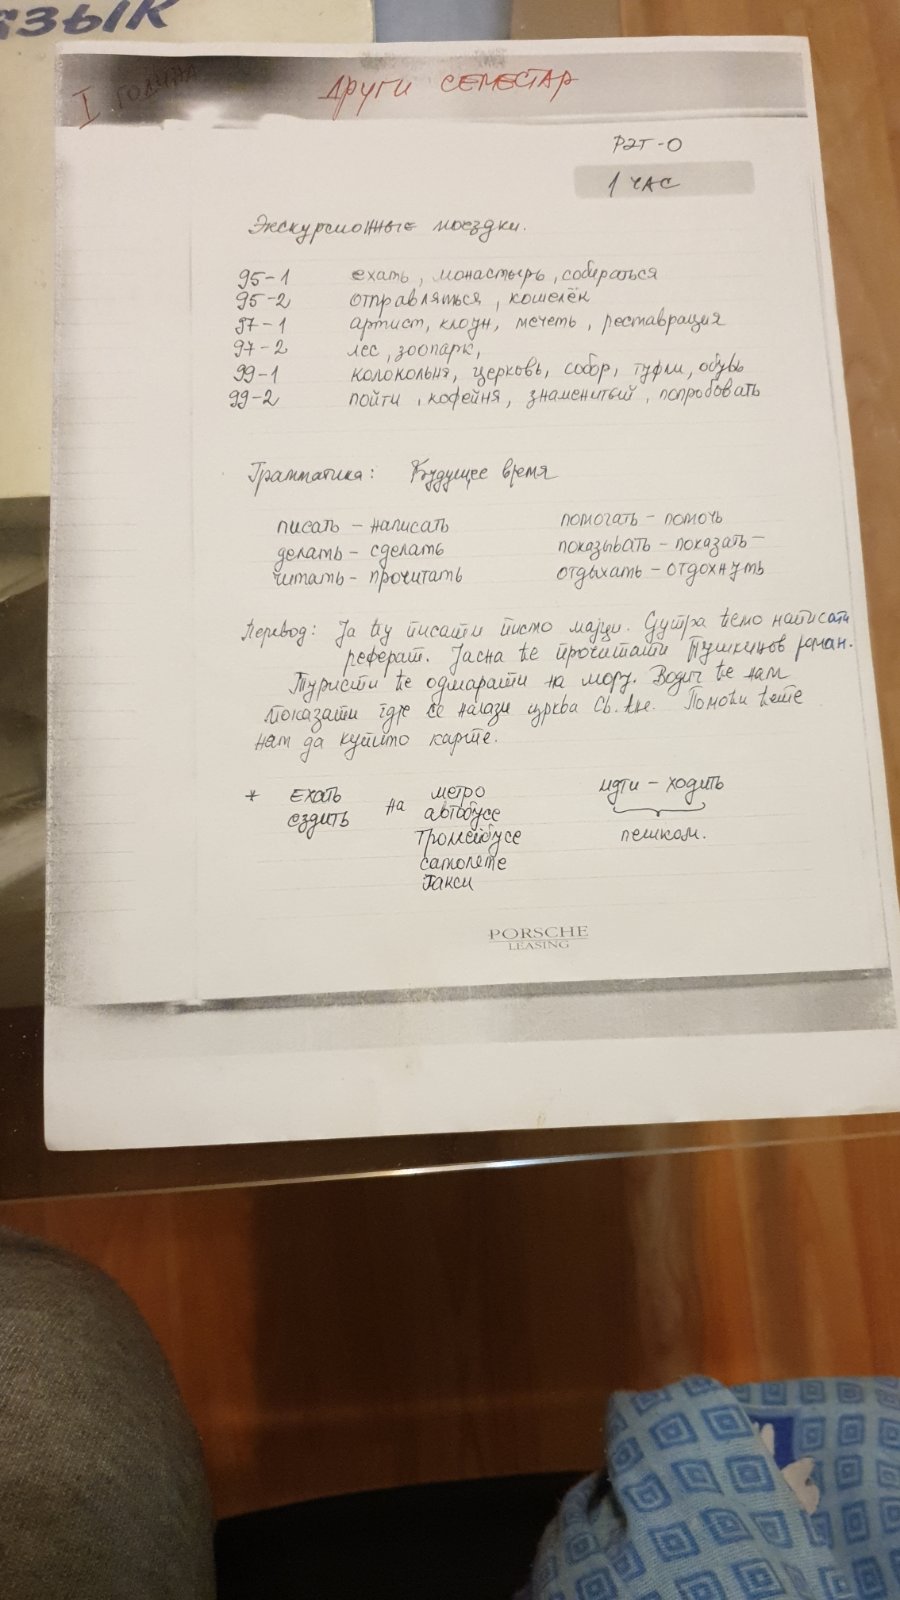 ЯЗЫК
I ГОДИНА
ДРУГИ СЕМЕСТАР
РЭТ-О
1 ЧАС
Экскурсионные поездки.
95-1 ехать, монастырь, собираться
95-2 отправляться, кошелёк
97-1 артист, клоун, мечеть, реставрация
97-2 лес, зоопарк,
99-1 колокольня, церковь, собор, туфли, обувь
99-2 пойти, кофейня, знаменитый, попробовать
Грамматика: Будущее время
писать - написать помогать - помочь
делать - сделать показывать - показать -
читать - прочитать отдыхать - отдохнуть
Перевод: Ја ћу писати писмо мајци. Сутра ћемо написати
реферат. Јасна ће прочитати Пушкинов роман.
Туристи ће одмарати на мору. Водич ће нам
показати где се налази црква Св. Ане. Помоћи ћете
нам да купимо карте.
* ЕХАТЬ на метро идти - ходить
ездить автобусе
пешком.
троллейбусе
самолете
такси
PORSCHE
LEASING